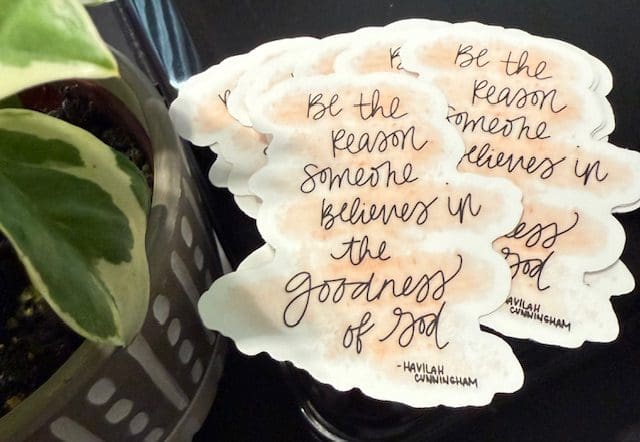 Be the
Reason
Someone
Believes in
the
goodness
of God
-HAVILAH
CUNNINGHAM
Be the
Reason
Someone
Believes in
God
HAVILAH
CUNNINGHAM